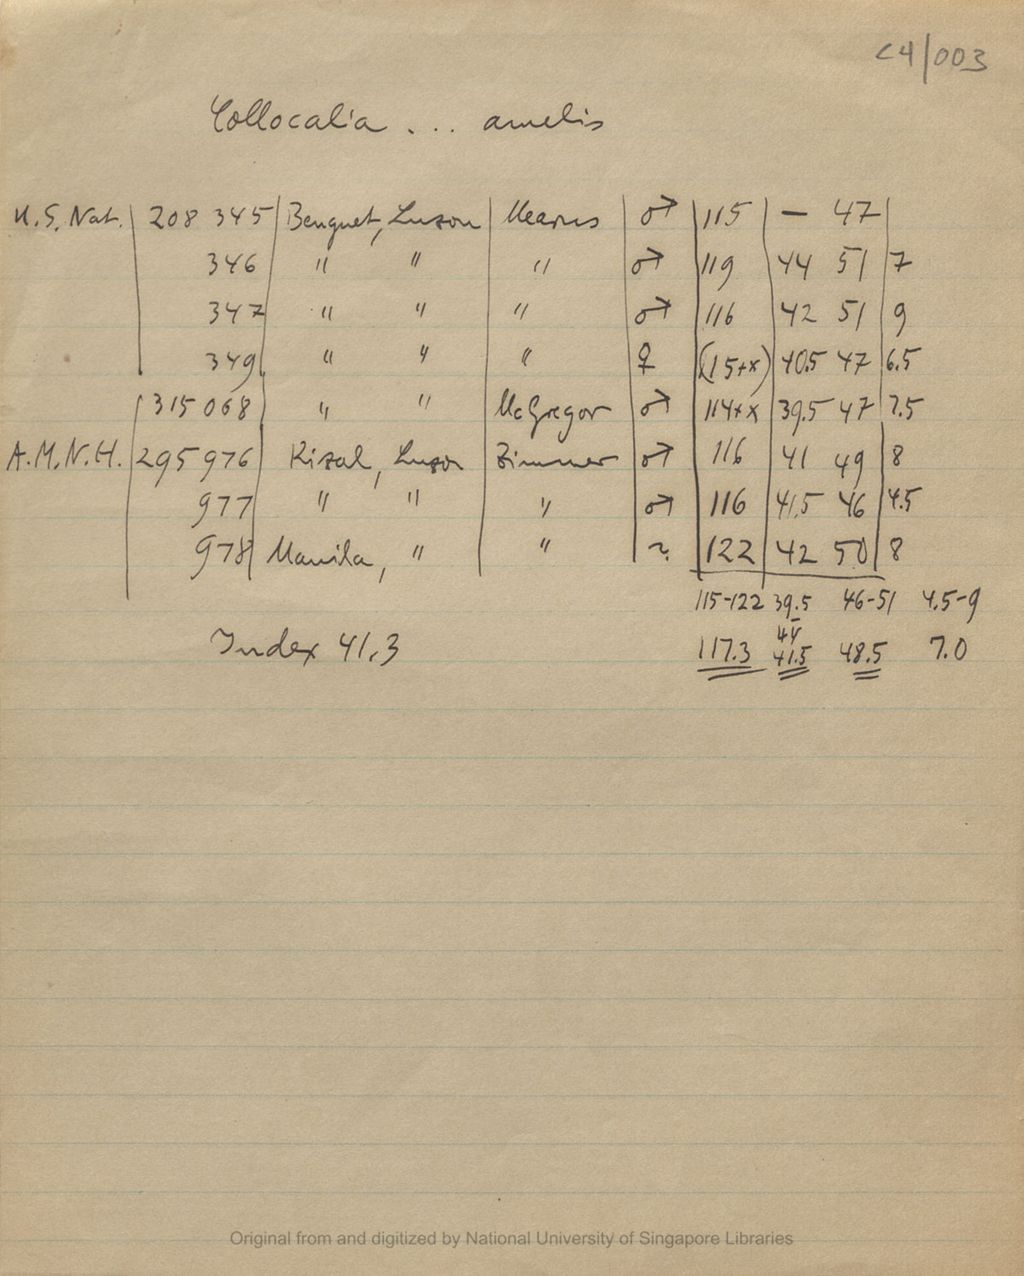 C4/003
Collocalia ... amelis
U.S. Nat. 208 345 Benguet, Luzon Mearns ♂ 115 — 47
346 " " " ♂ 119 44 51 7
347 " " " ♂ 116 42 51 9
349 " " " ♀ (15+x) 40.5 47 6.5
315 068 " " McGregor ♂ 114+x 39.5 47 7.5
A.M.N.H. 295976 Rizal, Luzon Zimmer ♂ 116 41 49 8
977 " " " ♂ 116 41.5 46 4.5
978 Manila, " " ? 122 42 50 8
115-122 39.5-44 46-51 4.5-9
Index 41.3 117.3 41.5 48.5 7.0
Original from and digitized by National University of Singapore Libraries